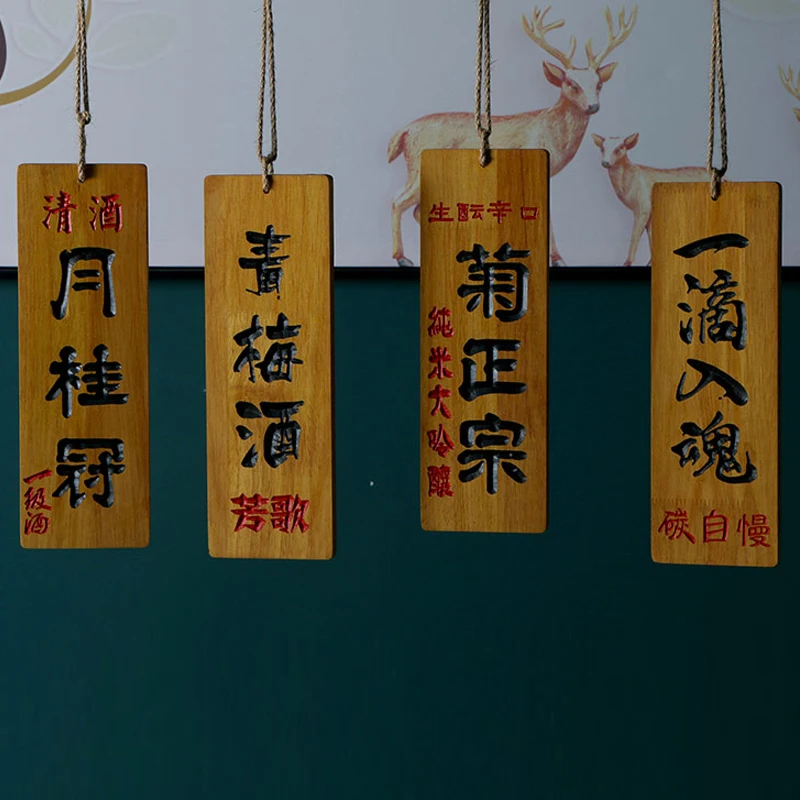 清酒
月桂冠
一级酒
青梅酒
芳歌
生酛辛口
菊正宗
純米大吟釀
一滴入魂
碳自慢